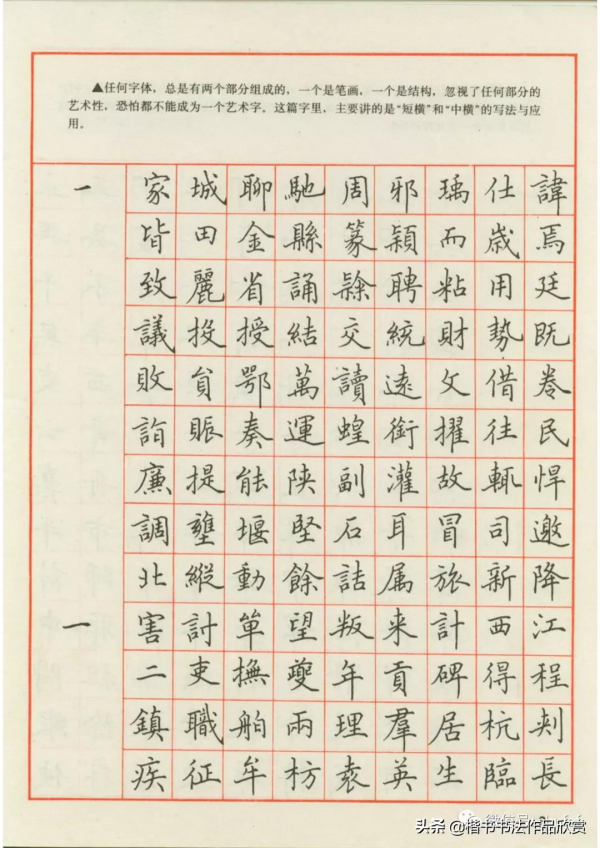 ▲任何字体，总是有两个部分组成的，一个是笔画，一个是结构，忽视了任何部分的
艺术性，恐怕都不能成为一个艺术字。这篇字里，主要讲的是“短横”和“中横”的写法与应
用。
一 家 城 聊 馳 周 邪 瑀 仕 諱
皆 田 金 縣 篆 穎 而 歲 焉
致 麗 省 誦 隸 聘 粘 用 廷
議 投 授 結 交 統 財 勢 既
敗 貧 鄂 萬 讀 遠 文 借 卷
詣 賑 奏 運 蝗 銜 擢 往 民
廉 提 能 陝 副 灌 故 輒 悍
調 壅 堰 堅 石 耳 冒 司 邀
北 縱 動 餘 詰 属 旅 新 降
一 害 討 箄 望 叛 来 計 西 江
二 吏 撫 夔 年 貢 碑 得 程
鎮 職 舶 兩 理 羣 居 杭
疾 征 牟 枋 袁 英 生 臨 長
微信号
头条 @楷书书法作品欣赏